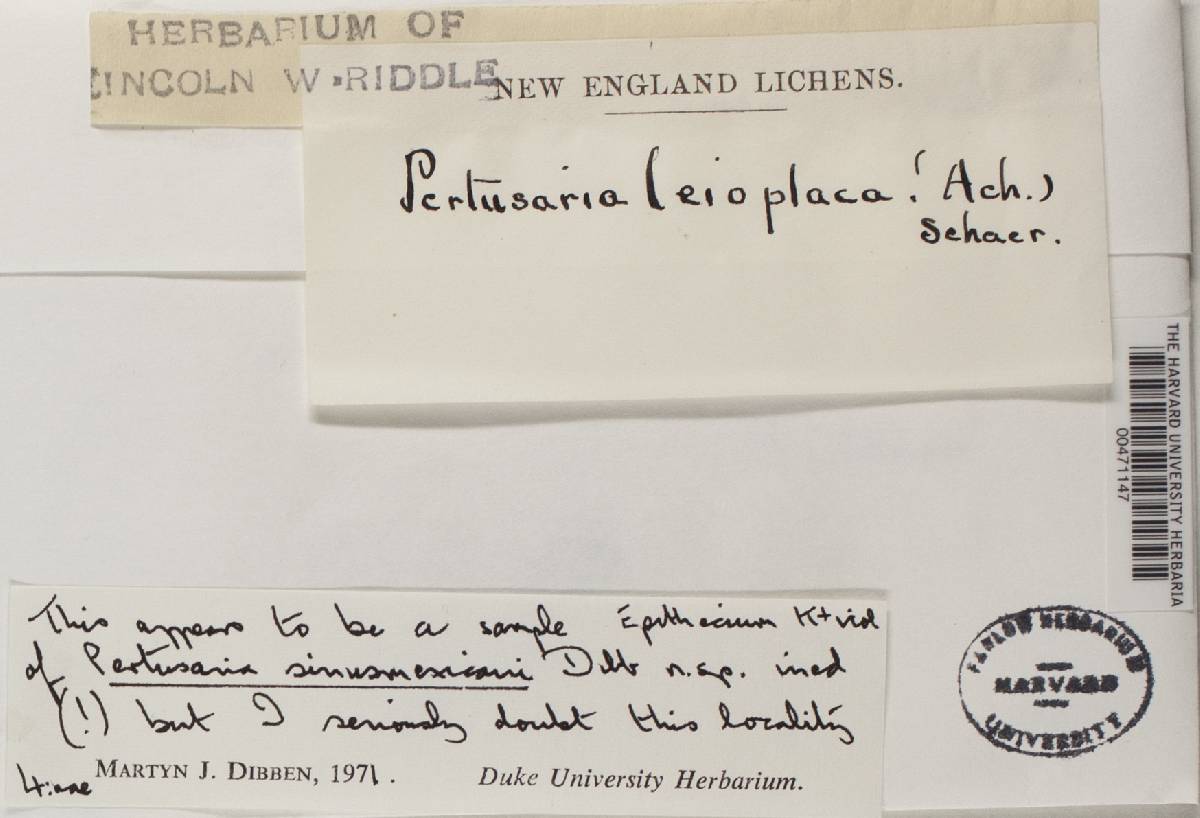 HERBARIUM OF
LINCOLN W. RIDDLE
NEW ENGLAND LICHENS.
Pertusaria leioplaca (Ach.)
Schaer.
THE HARVARD UNIVERSITY HERBARIA
00471147
This appears to be a sample Epithecium K+ viol
of Pertusaria sinusmexicani Dibb n.sp. ined
(!) but I seriously doubt this locality
MARTYN J. DIBBEN, 1971.
Duke University Herbarium.
FARLOW HERBARIUM
HARVARD
UNIVERSITY